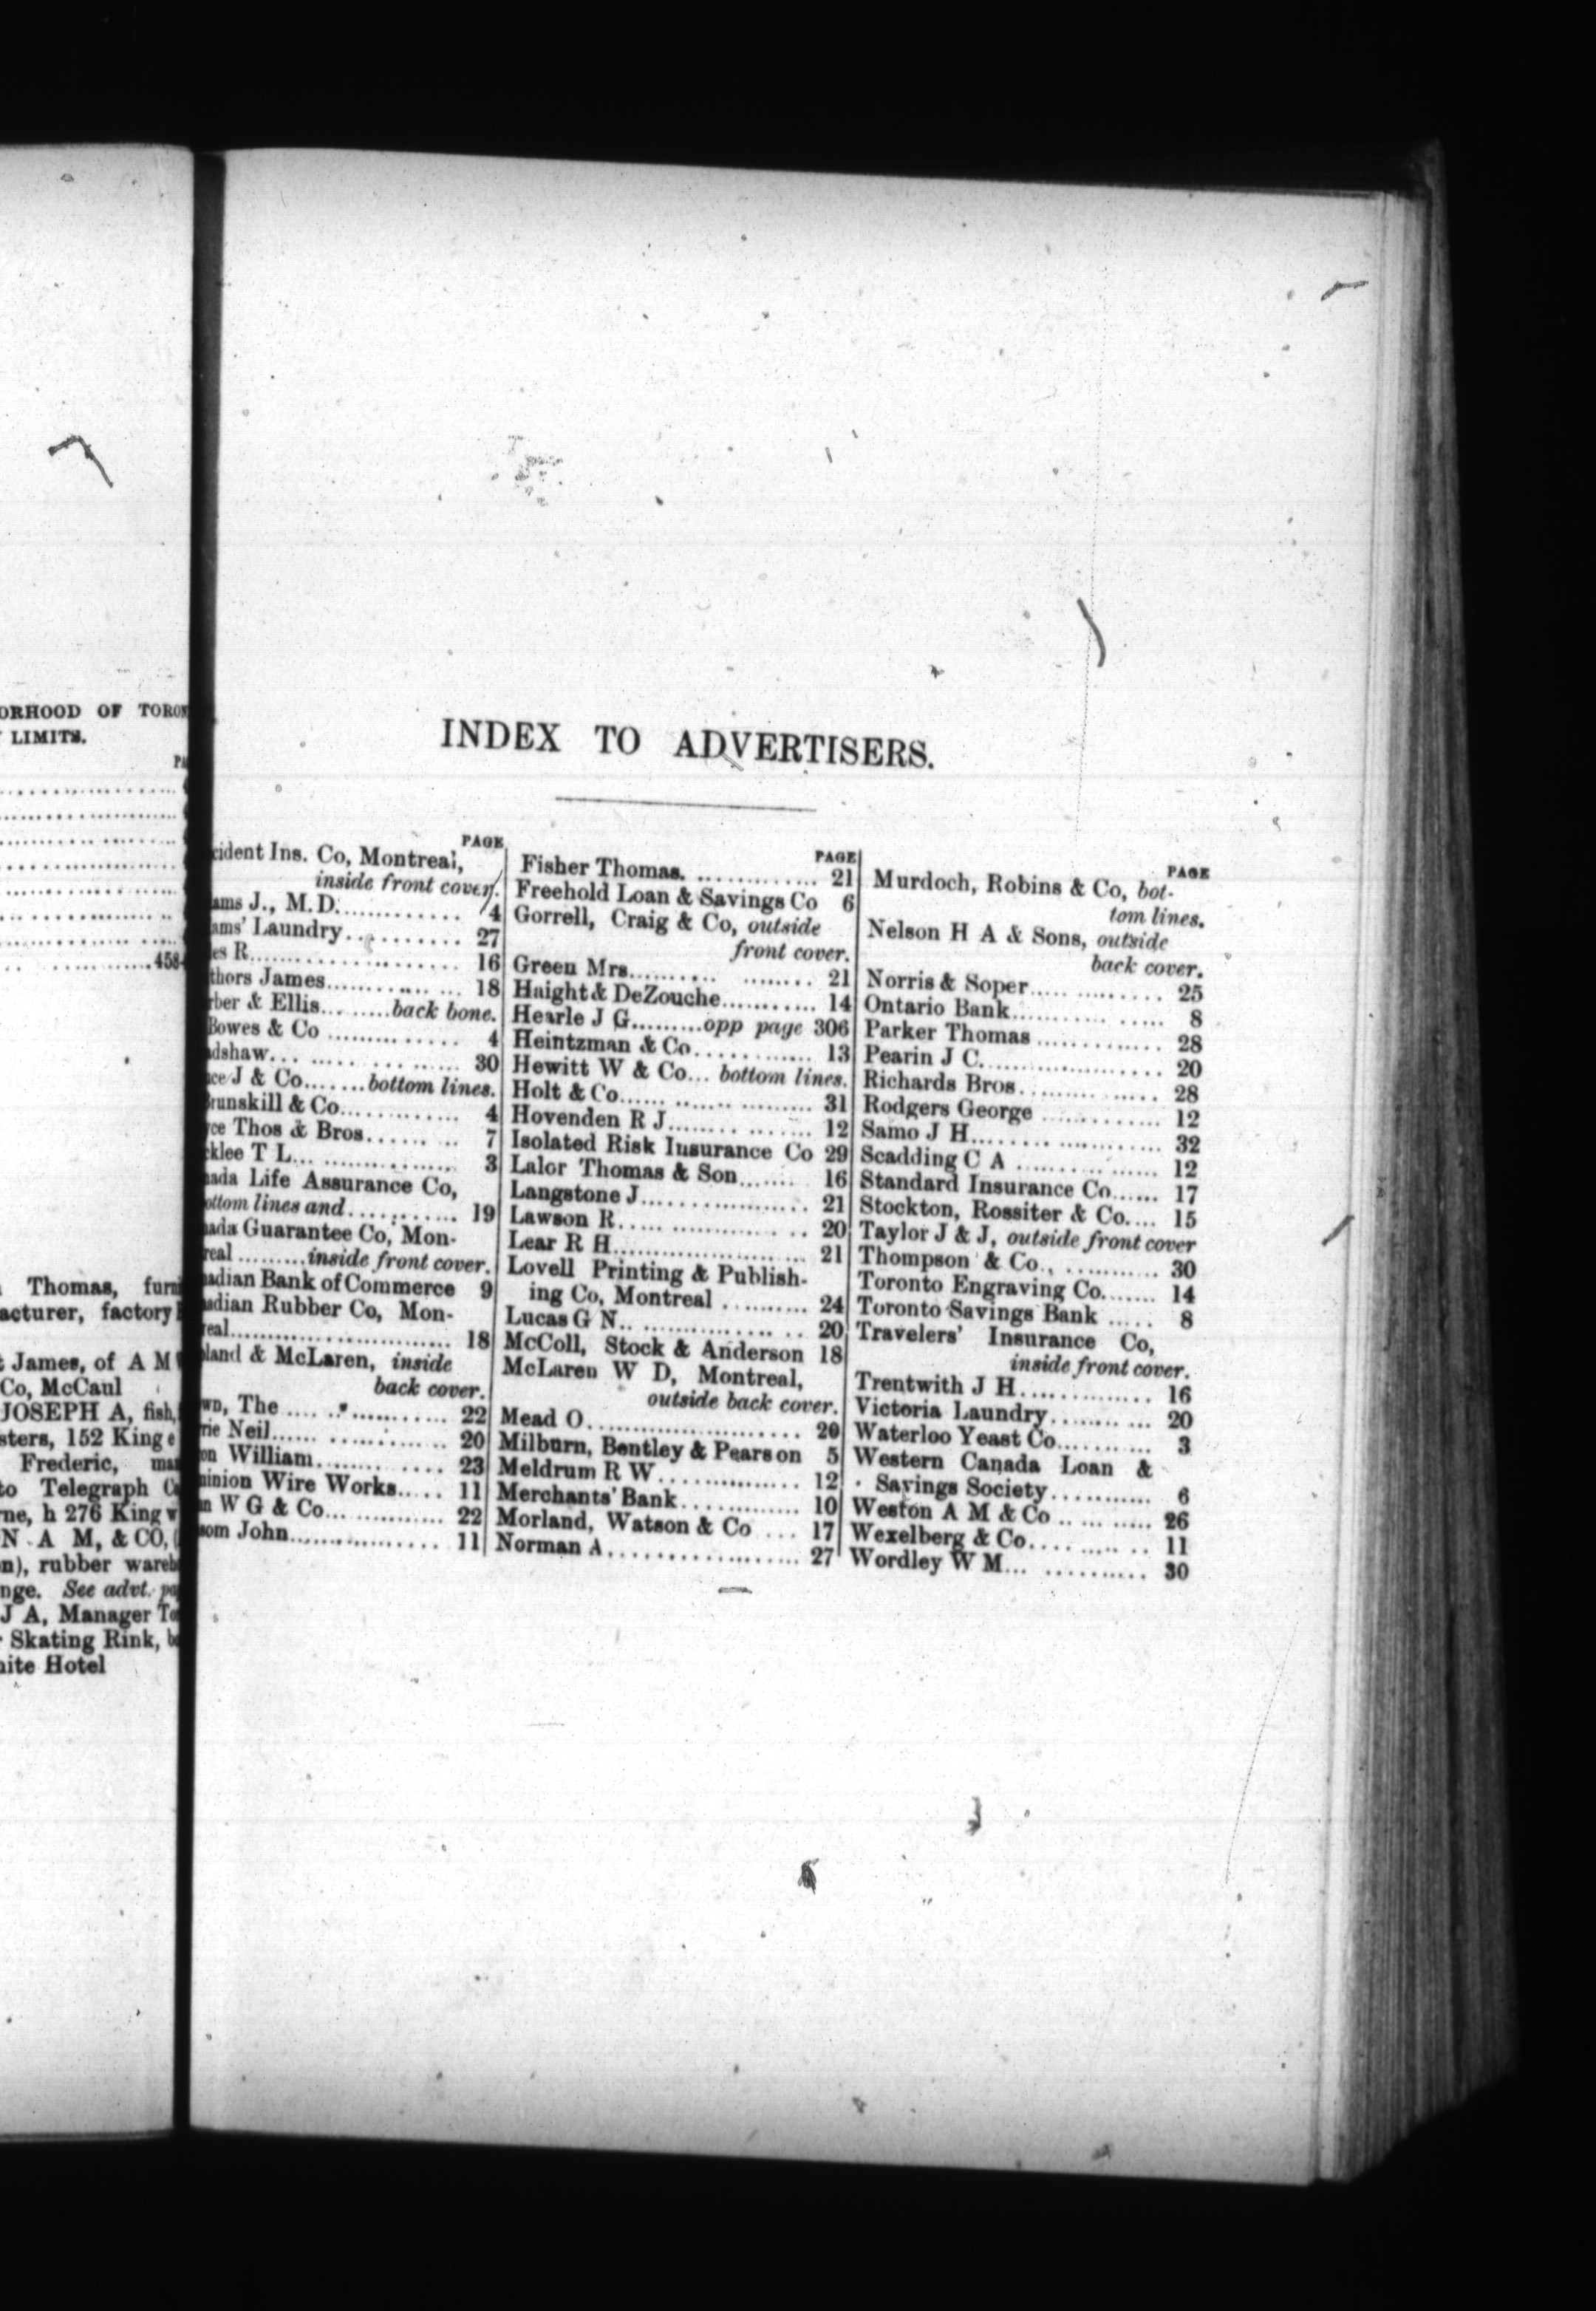 ORHOOD OF TORON
LIMITS.
458
Thomas, furni
acturer, factory
James, of A M
Co, McCaul
JOSEPH A, fish,
sters, 152 King e
Frederic, man
to Telegraph Co
ne, h 276 King w
N A M, & CO, (
n), rubber wareh
nge. See advt. pa
J A, Manager To
Skating Rink, bo
ite Hotel
INDEX TO ADVERTISERS.
PAGE
cident Ins. Co, Montreal,
inside front cover.
ams J., M.D. 4
ams' Laundry 27
es R 16
thors James 18
rber & Ellis back bone.
Bowes & Co 4
dshaw 30
ce J & Co bottom lines.
Brunskill & Co 4
ce Thos & Bros 7
cklee T L 3
nada Life Assurance Co,
ottom lines and 19
nada Guarantee Co, Mon-
real inside front cover.
nadian Bank of Commerce 9
nadian Rubber Co, Mon-
real 18
land & McLaren, inside
back cover.
wn, The 22
rie Neil 20
on William 23
minion Wire Works 11
n W G & Co 22
som John 11
PAGE
Fisher Thomas. 21
Freehold Loan & Savings Co 6
Gorrell, Craig & Co, outside
front cover.
Green Mrs 21
Haight & DeZouche 14
Hearle J G opp page 306
Heintzman & Co 13
Hewitt W & Co... bottom lines.
Holt & Co 31
Hovenden R J 12
Isolated Risk Insurance Co 29
Lalor Thomas & Son 16
Langstone J 21
Lawson R 20
Lear R H 21
Lovell Printing & Publish-
ing Co, Montreal 24
Lucas G N 20
McColl, Stock & Anderson 18
McLaren W D, Montreal,
outside back cover.
Mead O 20
Milburn, Bentley & Pearson 5
Meldrum R W 12
Merchants' Bank 10
Morland, Watson & Co 17
Norman A 27
PAGE
Murdoch, Robins & Co, bot-
tom lines.
Nelson H A & Sons, outside
back cover.
Norris & Soper 25
Ontario Bank 8
Parker Thomas 28
Pearin J C 20
Richards Bros 28
Rodgers George 12
Samo J H 32
Scadding C A 12
Standard Insurance Co 17
Stockton, Rossiter & Co 15
Taylor J & J, outside front cover
Thompson & Co 30
Toronto Engraving Co 14
Toronto Savings Bank 8
Travelers' Insurance Co,
inside front cover.
Trentwith J H 16
Victoria Laundry 20
Waterloo Yeast Co 3
Western Canada Loan &
Savings Society 6
Weston A M & Co 26
Wexelberg & Co 11
Wordley W M 30